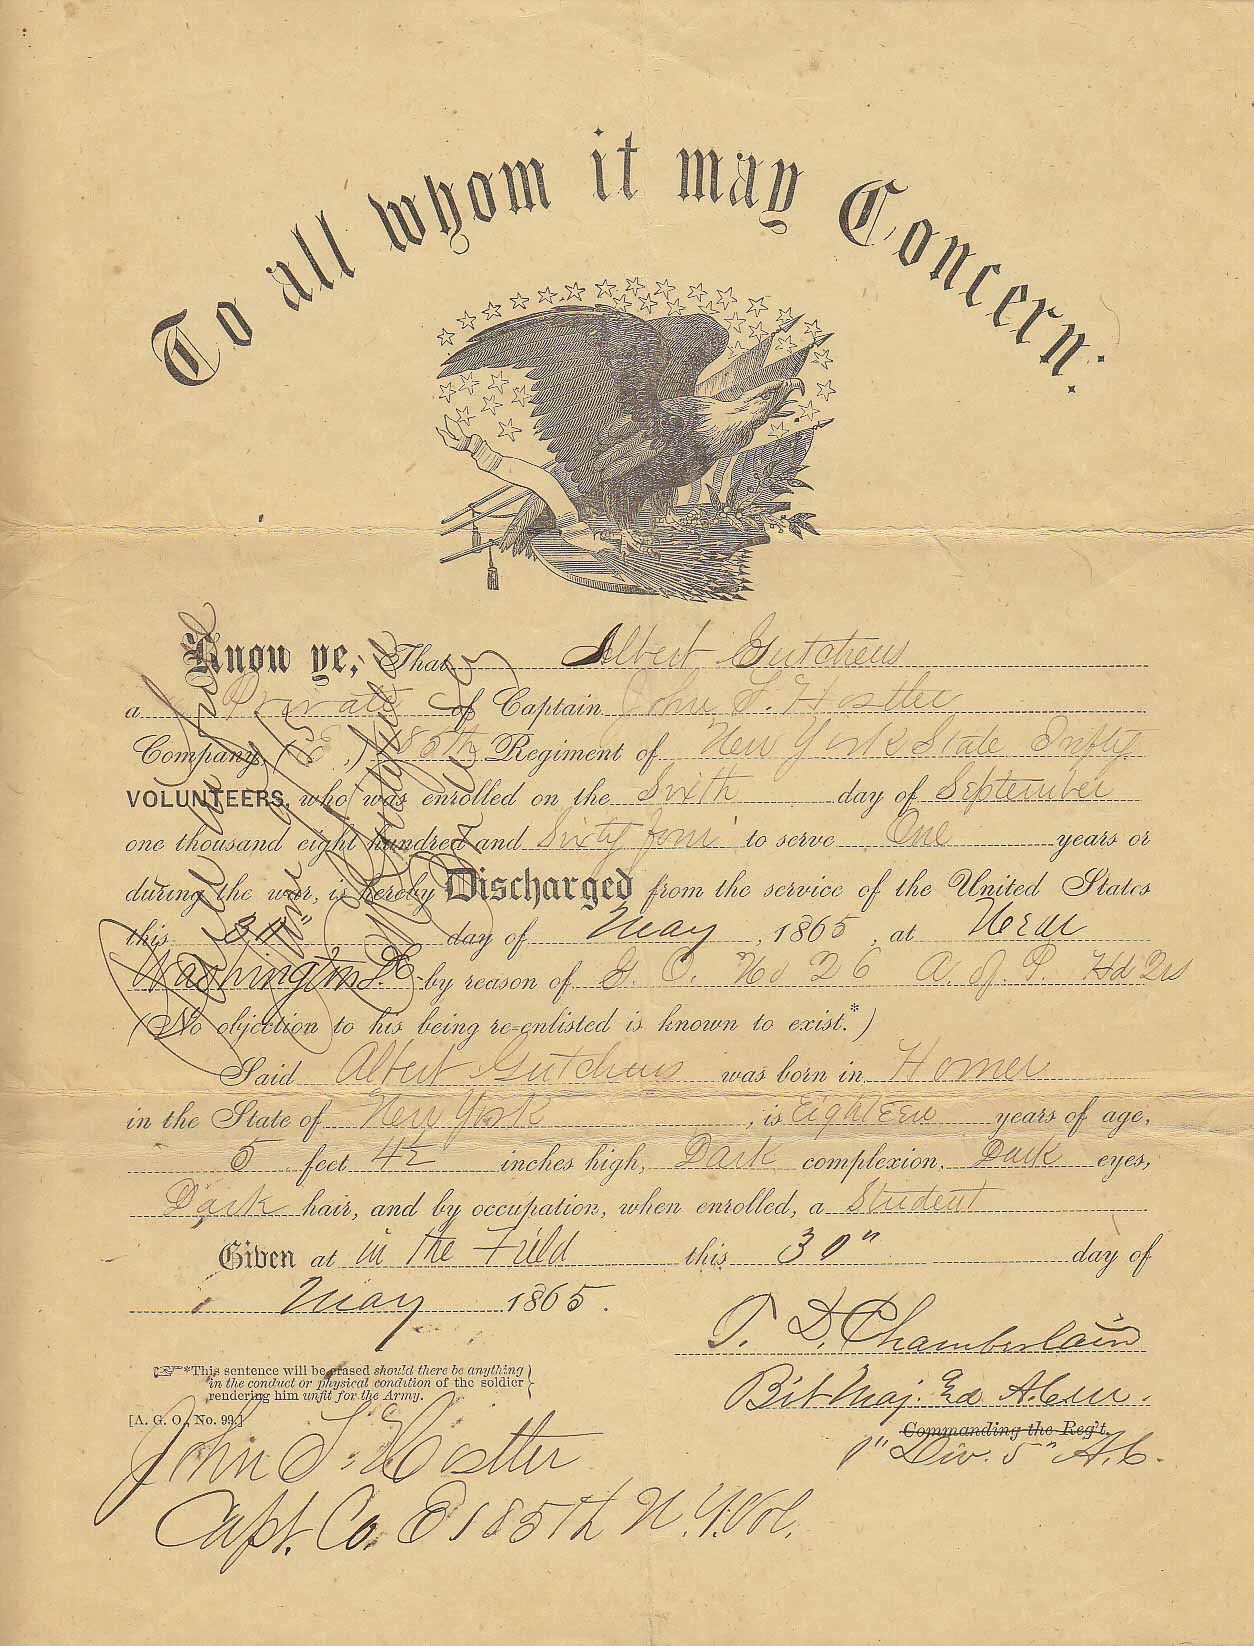 To all whom it may Concern:
Know ye, That Albert Gutchess
a Private of Captain John S. Hostler
Company, (E,) 185th Regiment of New York State Infty
VOLUNTEERS, who was enrolled on the Sixth day of September
one thousand eight hundred and Sixty four to serve One years or
during the war, is hereby Discharged from the service of the United States
this 30" day of May, 1865, at Near
Washington D.C. by reason of G. O. No 26 A. of P. Hd Qrs
(No objection to his being re-enlisted is known to exist.*)
Said Albert Gutchess was born in Homer
in the State of New York, is Eighteen years of age,
5 feet 4½ inches high, Dark complexion, Dark eyes,
Dark hair, and by occupation, when enrolled, a Student
Given at in the Field this 30" day of
May 1865.
Chamberlain
Bvt Maj.
*This sentence will be erased should there be anything
in the conduct or physical condition of the soldier
rendering him unfit for the Army.
[A. G. O., No. 99.]
Commanding the Reg't.
1" Div. 5" A.C.
John S. Hostler
Capt. Co. E 185th N.Y. Vol.
Paid in full